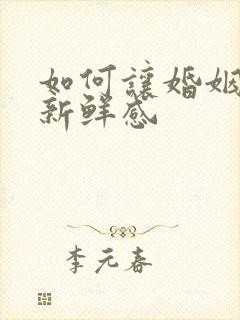 如何讓婚姻
新鲜感
李元春